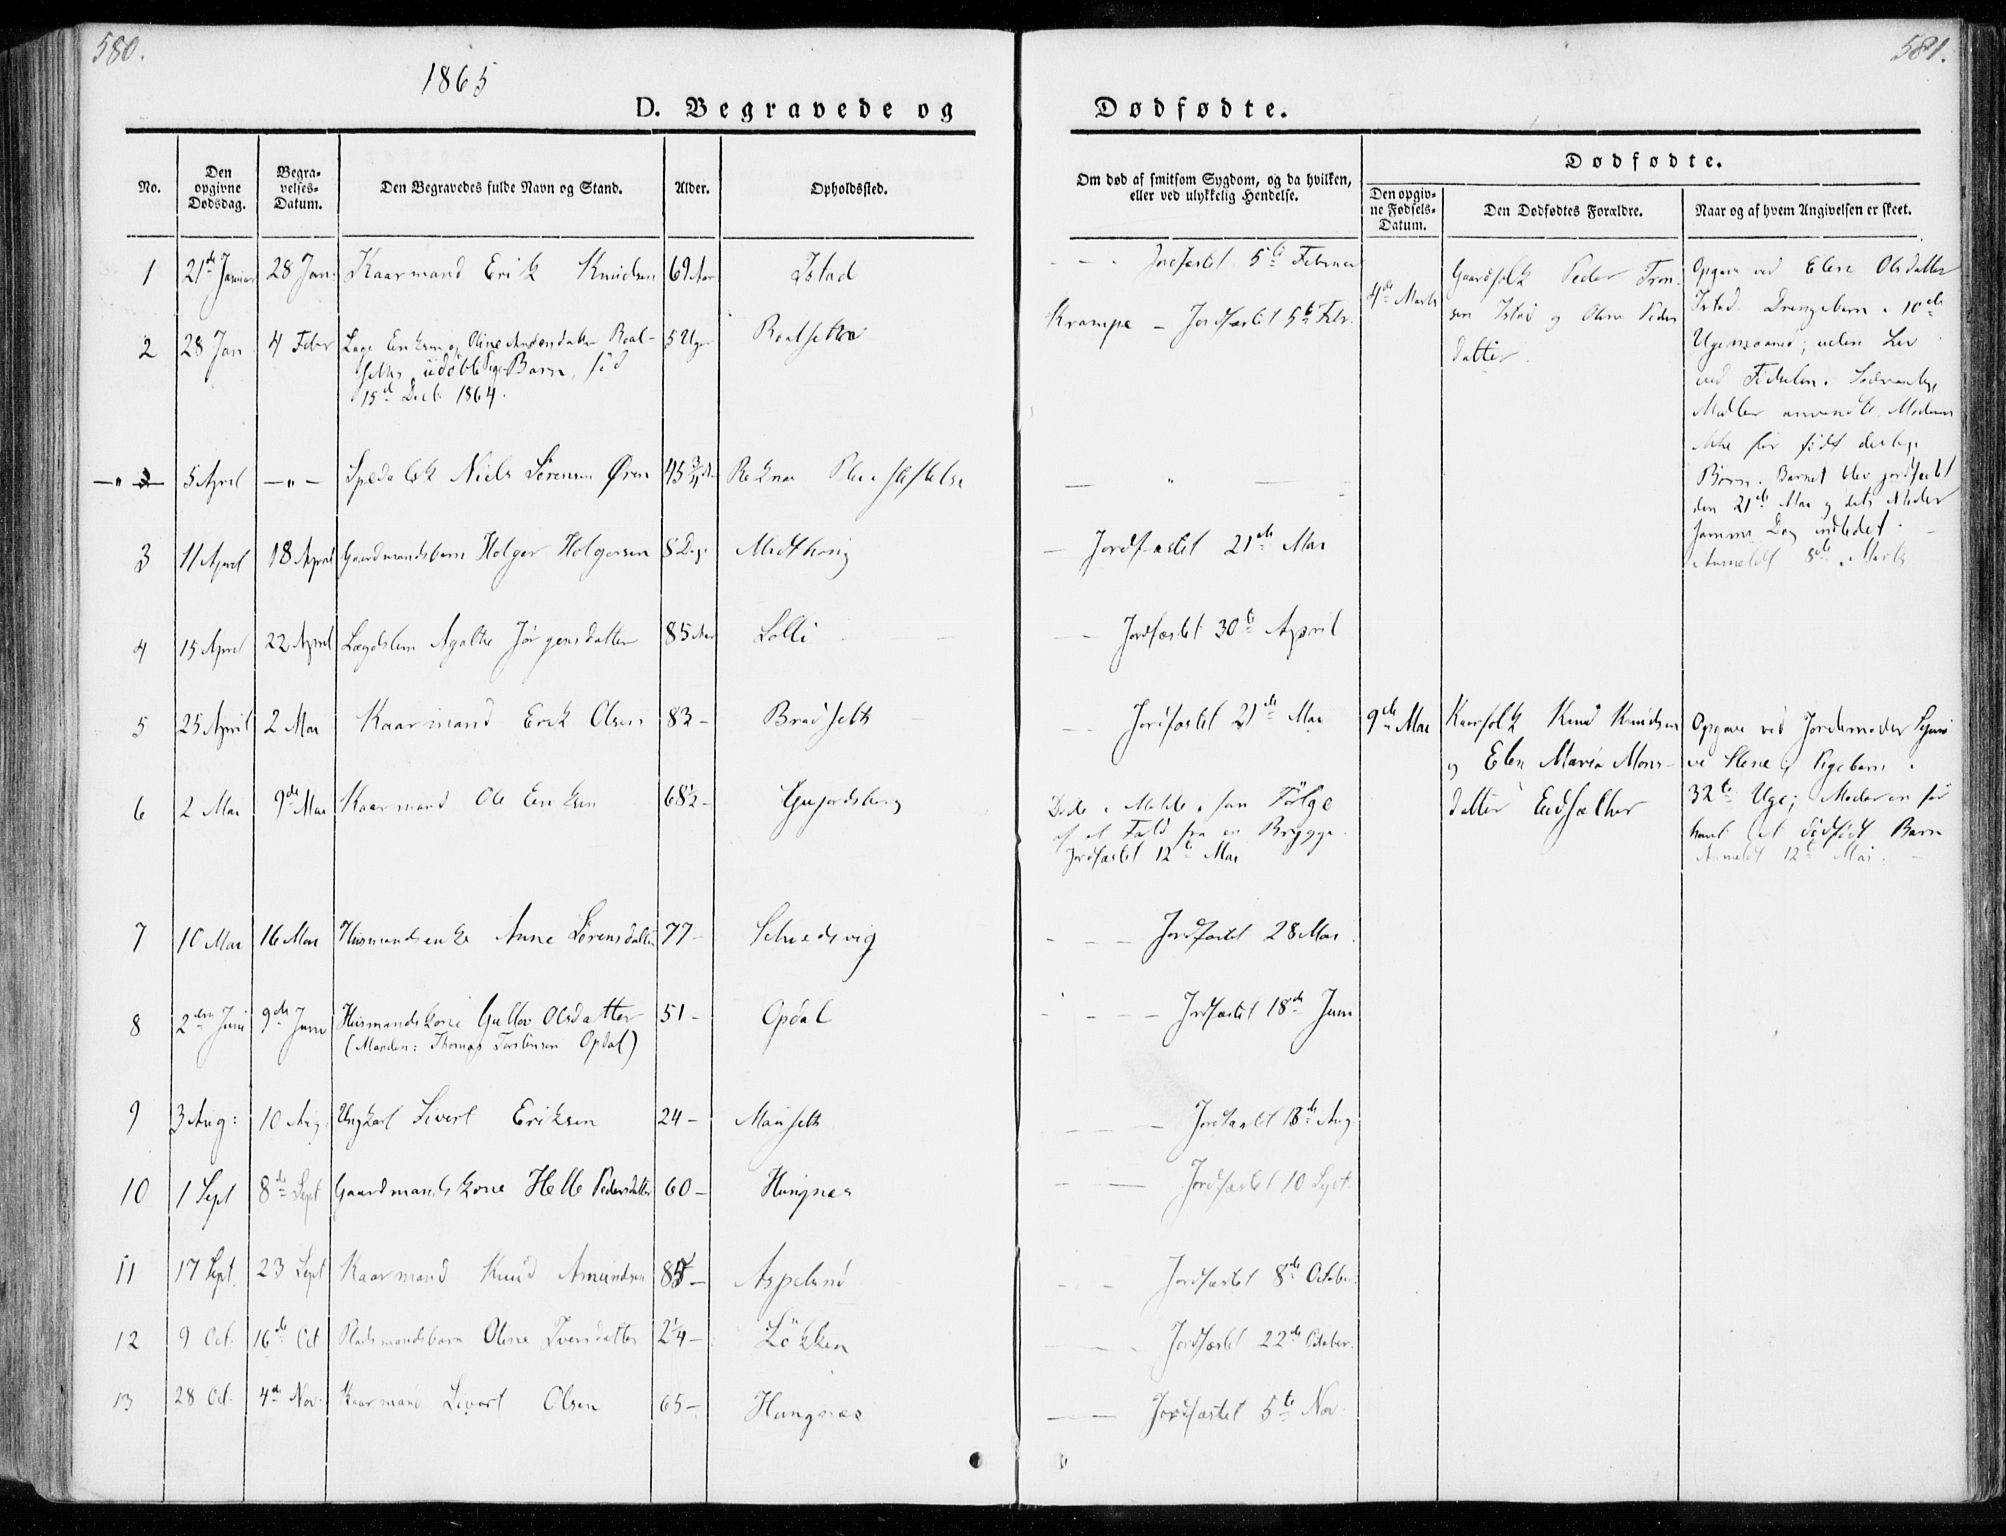 580.
1865
D. Begravede og
No.
Den opgivne Dødsdag.
Begravelses-Datum.
Den Begravedes fulde Navn og Stand.
Alder.
Opholdssted.
1 21de Januar 28 Jan: Kaarmand Erik Knudsen 69 Aar Istad
2 28 Jan 4 Febr Lage Eriksen og Oline Andersdatter Roal-
sethr udøbte Pige Barn, fød
15de Decb 1864.
5 Uger
5 April —"— Spedalsk Niels Sørensen Øren 45 3/4 Reknes
3 11 April 18 April Gaardmandsbarn Holger Holgersen 8 Dage
4 15 April 22 April Lægdslem Agathe Jørgensdatter 85 Aar Lolli
5 25 April 2 Mai Kaarmand Erik Olsen 83 –
6 2 Mai 9de Mai Kaarmand Ole Eriksen 68½ –
7 10 Mai 16 Mai Husmandsenke Anne Sørensdatter 77 –
8 2den Juni 9de Juni Husmandskone Gullov Olsdatter 51 – Opdal
(Manden: Thomas Torstensen Opdal)
9 3 Aug: 10 Aug. Ungkarl Sivert Eriksen 24 – Mauseth
10 1 Sept 8de Sept Gaardmandskone Helle Pedersdatter 60 – Hungnes
11 17 Sept. 23 Sept Kaarmand Knud Amundsen 85 – Aspelund
12 9 Oct. 16de Oct Pladsmandsbarn Oline Iversdatter 2¼ – Løkken
13 28 Oct. 4de Nov. Kaarmand Sivert Olsen 65 – Hungnes
581.
Dødfødte.
Om død af smitsom Sygdom, og da hvilken, eller ved ulykkelig Hendelse.
Dødfødte.
Den opgivne Fødsels-Datum.
Den Dødfødtes Forældre.
Naar og af hvem Angivelsen er skeet.
Jordfæstet 5te Februar
Krampe – Jordfæstet 5te Febr.
Jordfæstet 21de Mai
Jordfæstet 30te April
Jordfæstet 21de Mai
Døde i Molde i
af et Fald fra en Brygge.
Jordfæstet 12te Mai
Jordfæstet 28 Mai
Jordfæstet 18de Juni
Jordfæstet 18de Aug
Jordfæstet 10 Sept.
Jordfæstet 8de October
Jordfæstet 22de October.
Jordfæstet 5te Nov.
4de Marts
Gaardfolk Peder Tron-
sen Istad og Oline Peders
datter.
Opgave ved Elen Olsdatter
Istad. Drengebarn i 10de
Ugemaaned; uden Liv
ved Fødselen. Sædvanlige
Midler anvendte. Moderen
ikke før født deslige
Børn. Barnet blev jordfæstet
den 21de Mai og dets Moder
samme Dag indledet.
Anmeldt 8de Marts
9de Mai
Kaarfolk Knud Knudsen
og Elen Maria Mons-
datter Eidsæther
Opgave ved Jordemoder
Pigebarn i
32te Uge; Moderen før
havt et dødfødt Barn
Anmeldt 12te Mai.